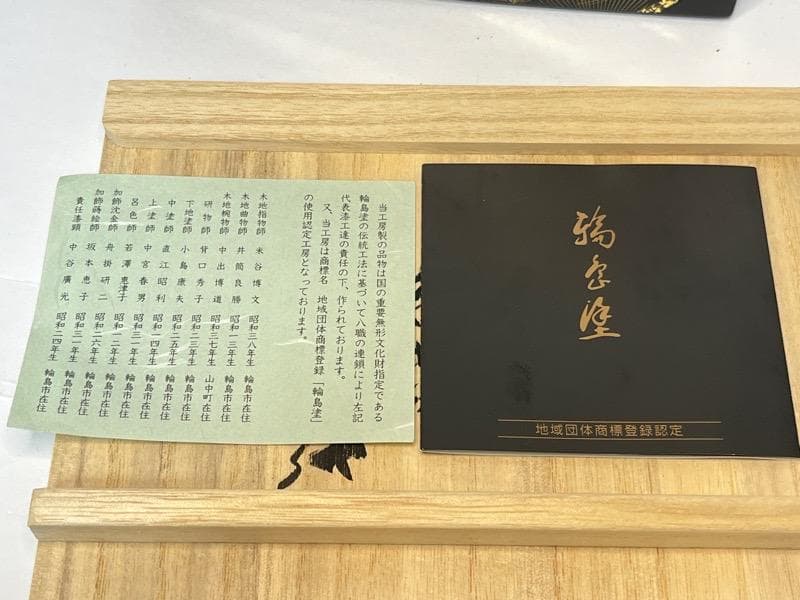 当工房製の品物は国の重要無形文化財指定である
輪島塗の伝統工法に基づいて八職の連鎖により左記
代表漆工達の責任の下、作られております。
又、当工房は商標名 地域団体商標登録「輪島塗」
の使用認定工房となっております。
木地指物師 米谷博文 昭和三八年生 輪島市在住
木地曲物師 井筒良勝 昭和一三年生 輪島市在住
木地椀物師 中出博道 昭和三七年生 山中町在住
研物師 背口秀子 昭和二三年生 輪島市在住
下地塗師 小島康夫 昭和二五年生 輪島市在住
中塗師 直江昭利 昭和一四年生 輪島市在住
上塗師 中宮春男 昭和三一年生 輪島市在住
呂色師 若澤恵津子 昭和一二年生 輪島市在住
加飾沈金師 舟掛研二 昭和二六年生 輪島市在住
加飾蒔絵師 坂本恵子 昭和三一年生 輪島市在住
責任漆頭 中谷廣光 昭和二四年生 輪島市在住
輪島塗
地域団体商標登録認定